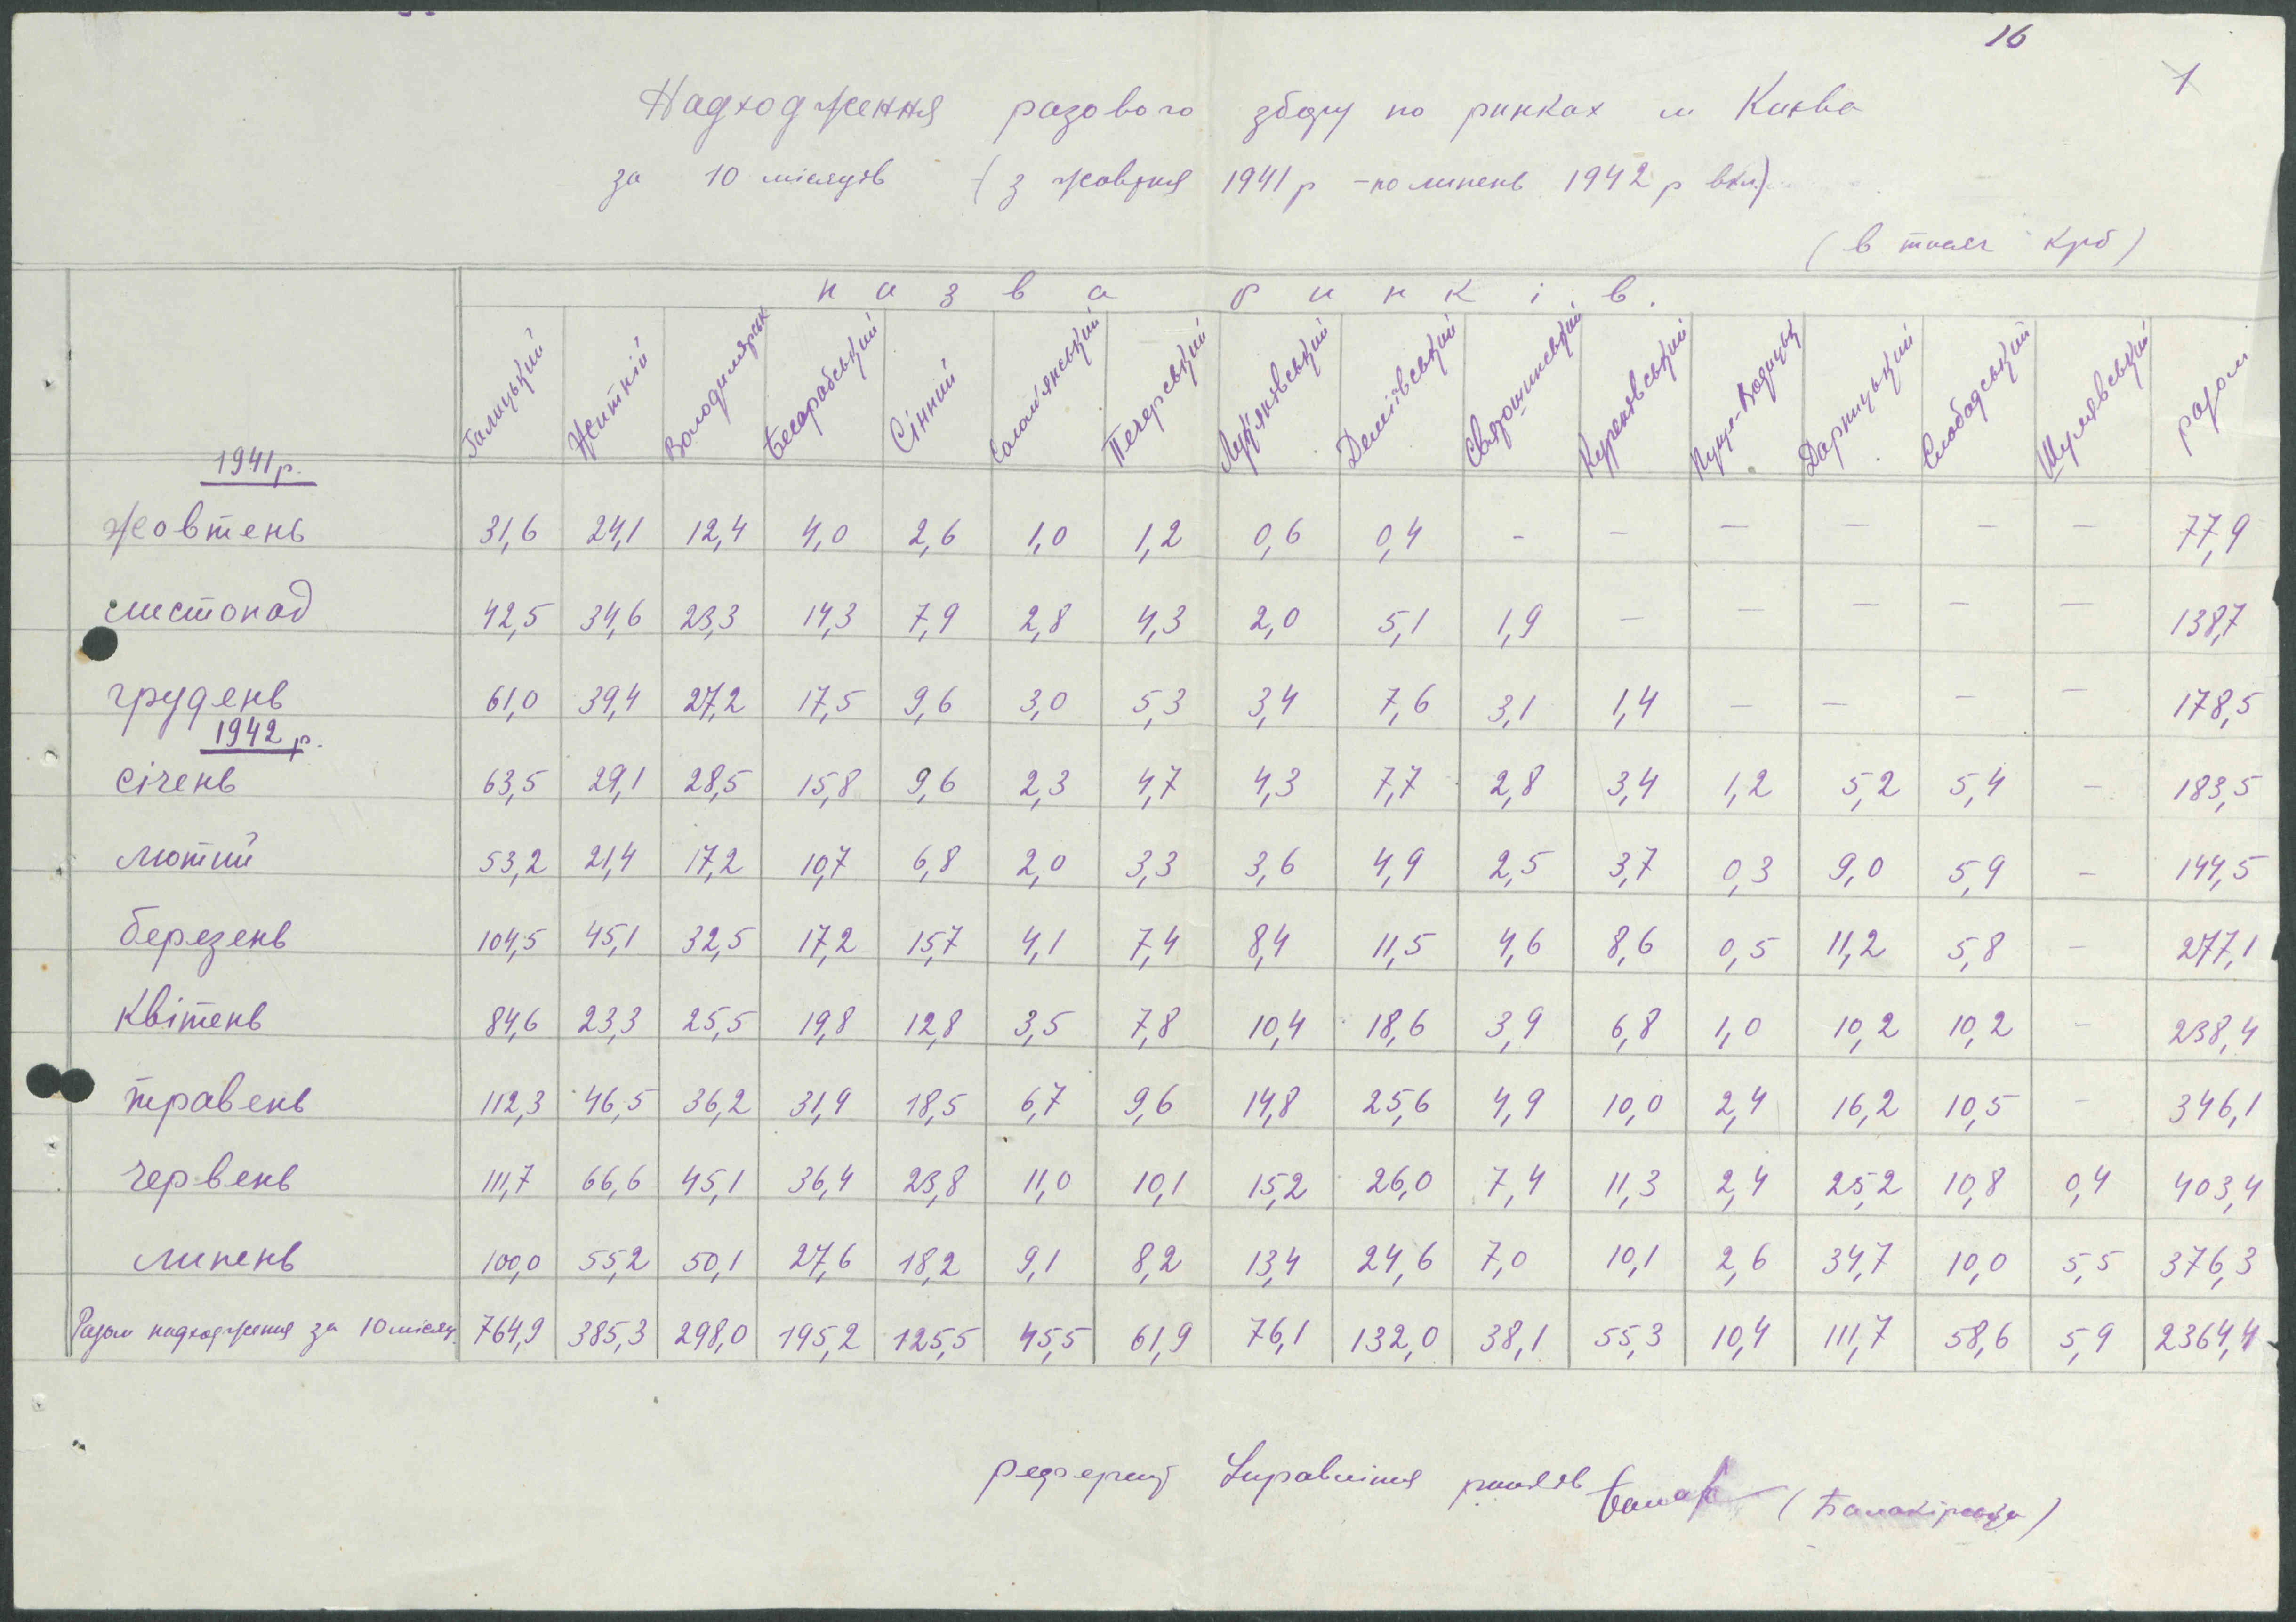 16
1
Надходження разового збору по ринках м Києва
за 10 місяців (з жовтня 1941 р - по липень 1942 р вкл)
(в тисяч крб)
назва ринків.
Галицький Житній Володимирськ Бесарабський Сінний Солом'янський Печерський Лук'янівський Деміївський Святошинський Куренівський Пуща-Водицьк Дарницький Слобадський Шулявський разом
1941 р.
жовтень 31,6 24,1 12,4 4,0 2,6 1,0 1,2 0,6 0,4 - - - - - - 77,9
листопад 42,5 34,6 23,3 14,3 7,9 2,8 4,3 2,0 5,1 1,9 - - - - - 138,7
грудень 61,0 39,4 27,2 17,5 9,6 3,0 5,3 3,4 7,6 3,1 1,4 - - - - 178,5
1942 р.
січень 63,5 29,1 28,5 15,8 9,6 2,3 4,7 4,3 7,7 2,8 3,4 1,2 5,2 5,4 - 183,5
лютий 53,2 21,4 17,2 10,7 6,8 2,0 3,3 3,6 4,9 2,5 3,7 0,3 9,0 5,9 - 144,5
березень 104,5 45,1 32,5 17,2 15,7 4,1 7,4 8,4 11,5 4,6 8,6 0,5 11,2 5,8 - 277,1
квітень 84,6 23,3 25,5 19,8 12,8 3,5 7,8 10,4 18,6 3,9 6,8 1,0 10,2 10,2 - 238,4
травень 112,3 46,5 36,2 31,9 18,5 6,7 9,6 14,8 25,6 4,9 10,0 2,4 16,2 10,5 - 346,1
червень 111,7 66,6 45,1 36,4 23,8 11,0 10,1 15,2 26,0 7,4 11,3 2,4 25,2 10,8 0,4 403,4
липень 100,0 55,2 50,1 27,6 18,2 9,1 8,2 13,4 24,6 7,0 10,1 2,6 34,7 10,0 5,5 376,3
Разом надходження за 10 місяц. 764,9 385,3 298,0 195,2 125,5 45,5 61,9 76,1 132,0 38,1 55,3 10,4 111,7 58,6 5,9 2364,4
референт Управління ринків